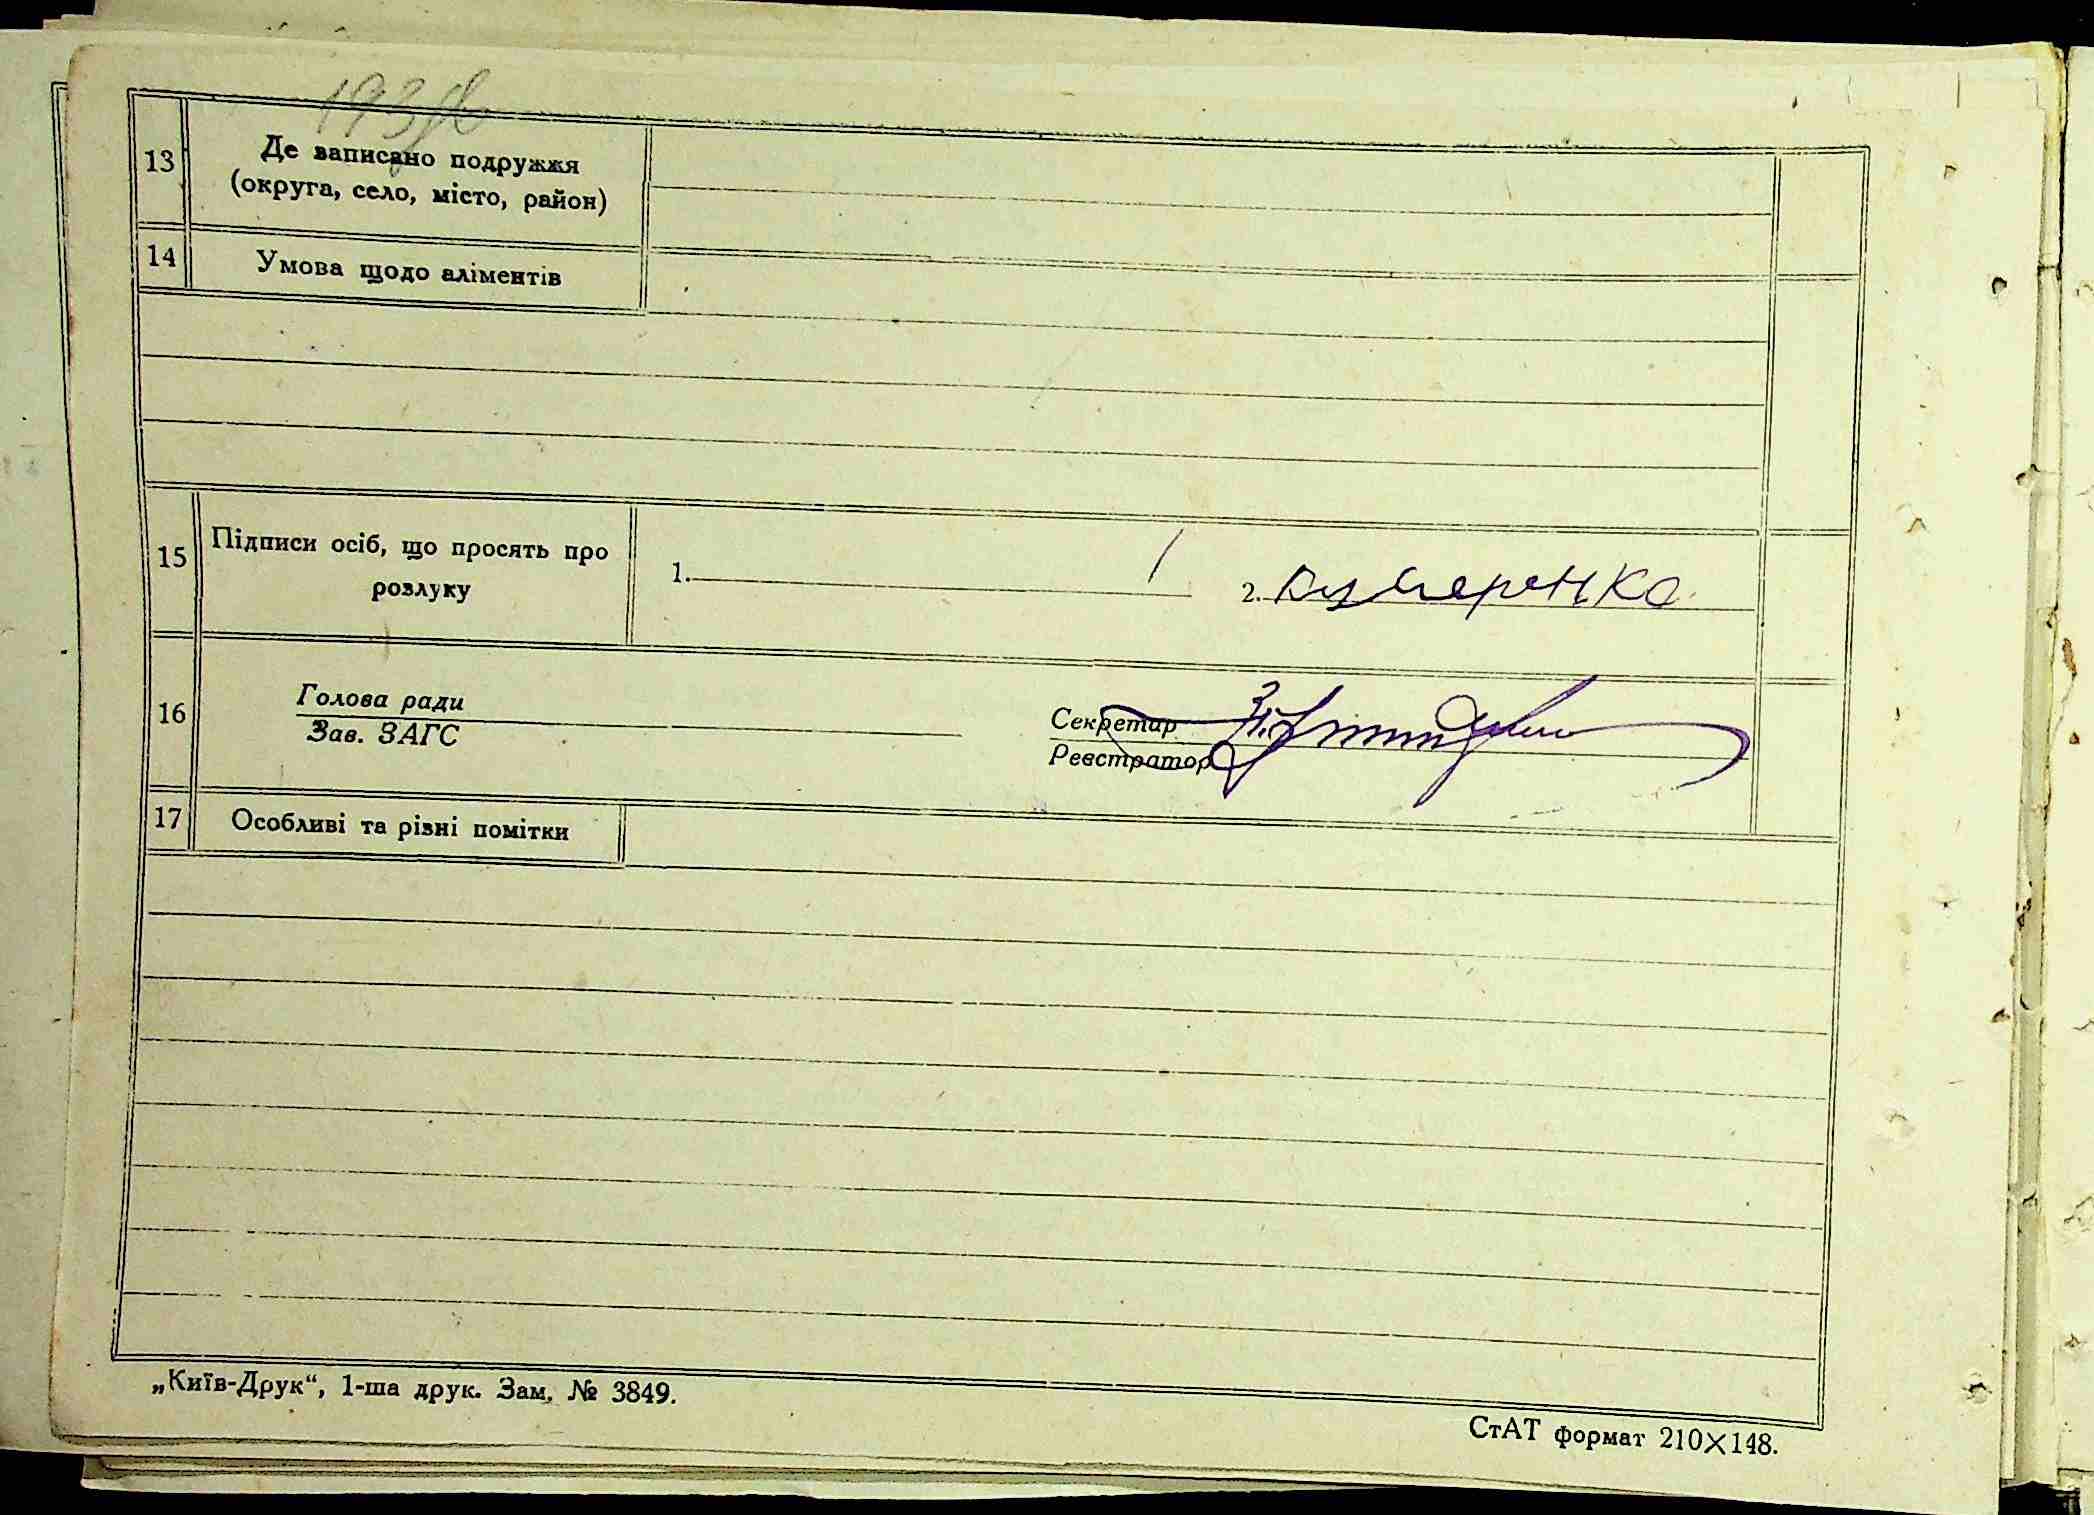 13 Де записано подружжя
(округа, село, місто, район)
14 Умова щодо аліментів
15 Підписи осіб, що просять про
розлуку
1. 2.
16 Голова ради
Зав. ЗАГС
Секретар
Реєстратор
17 Особливі та різні помітки
„Київ-Друк“, 1-ша друк. Зам. № 3849.
СтАТ формат 210×148.